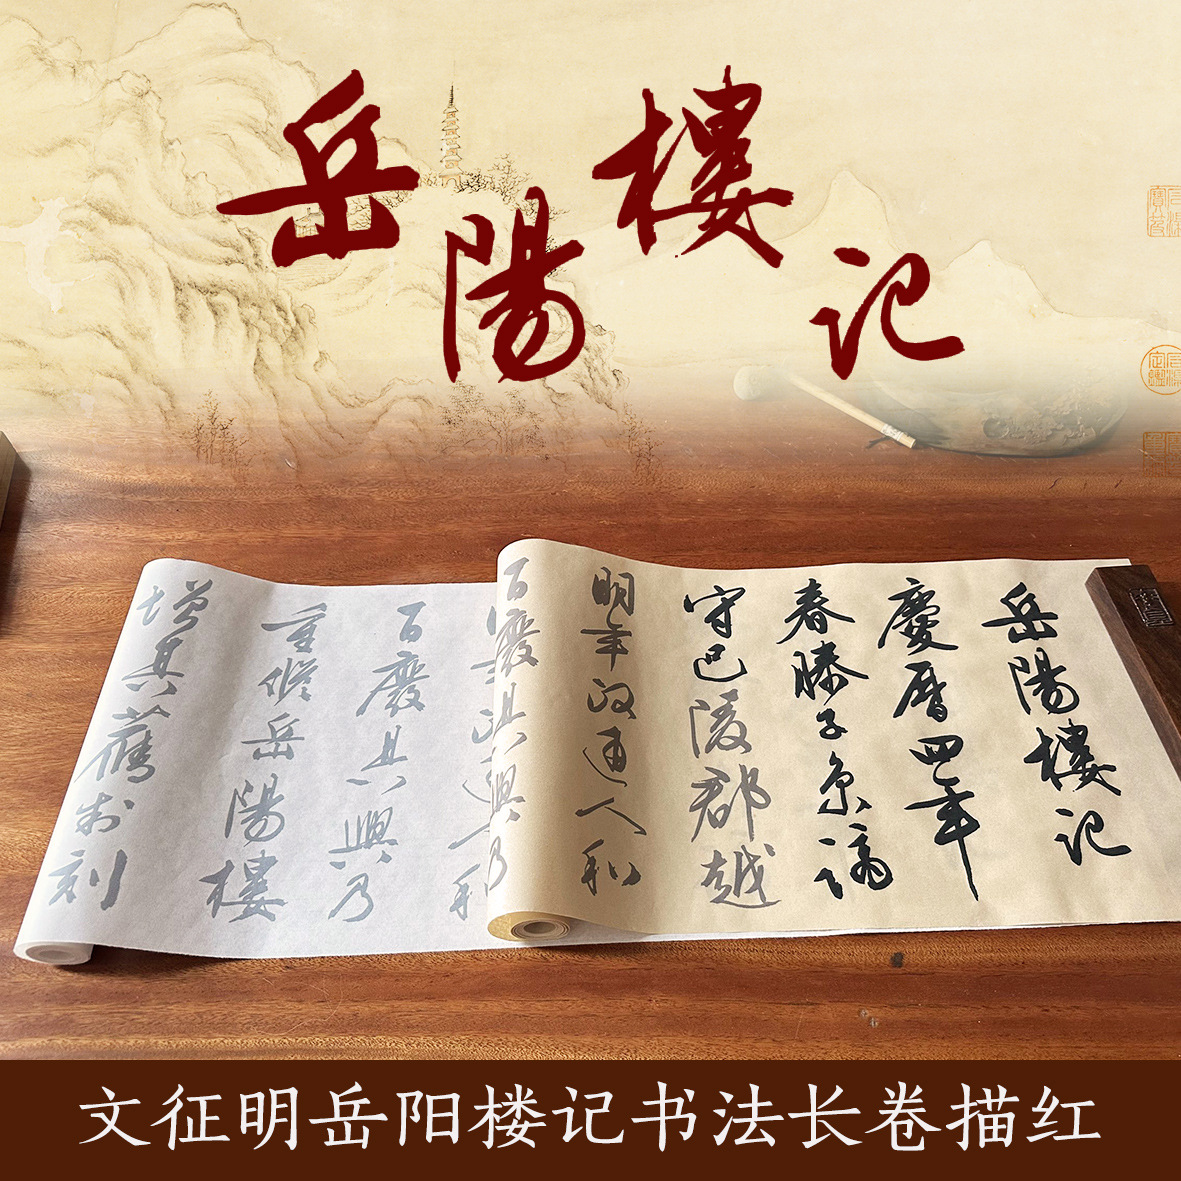 岳陽樓记
岳陽樓记
慶曆四年
春滕子京謫
守巴陵郡越
明年政通人和
百廢具興乃
百廢具興乃
重修岳陽樓
增其舊制刻
文征明岳阳楼记书法长卷描红